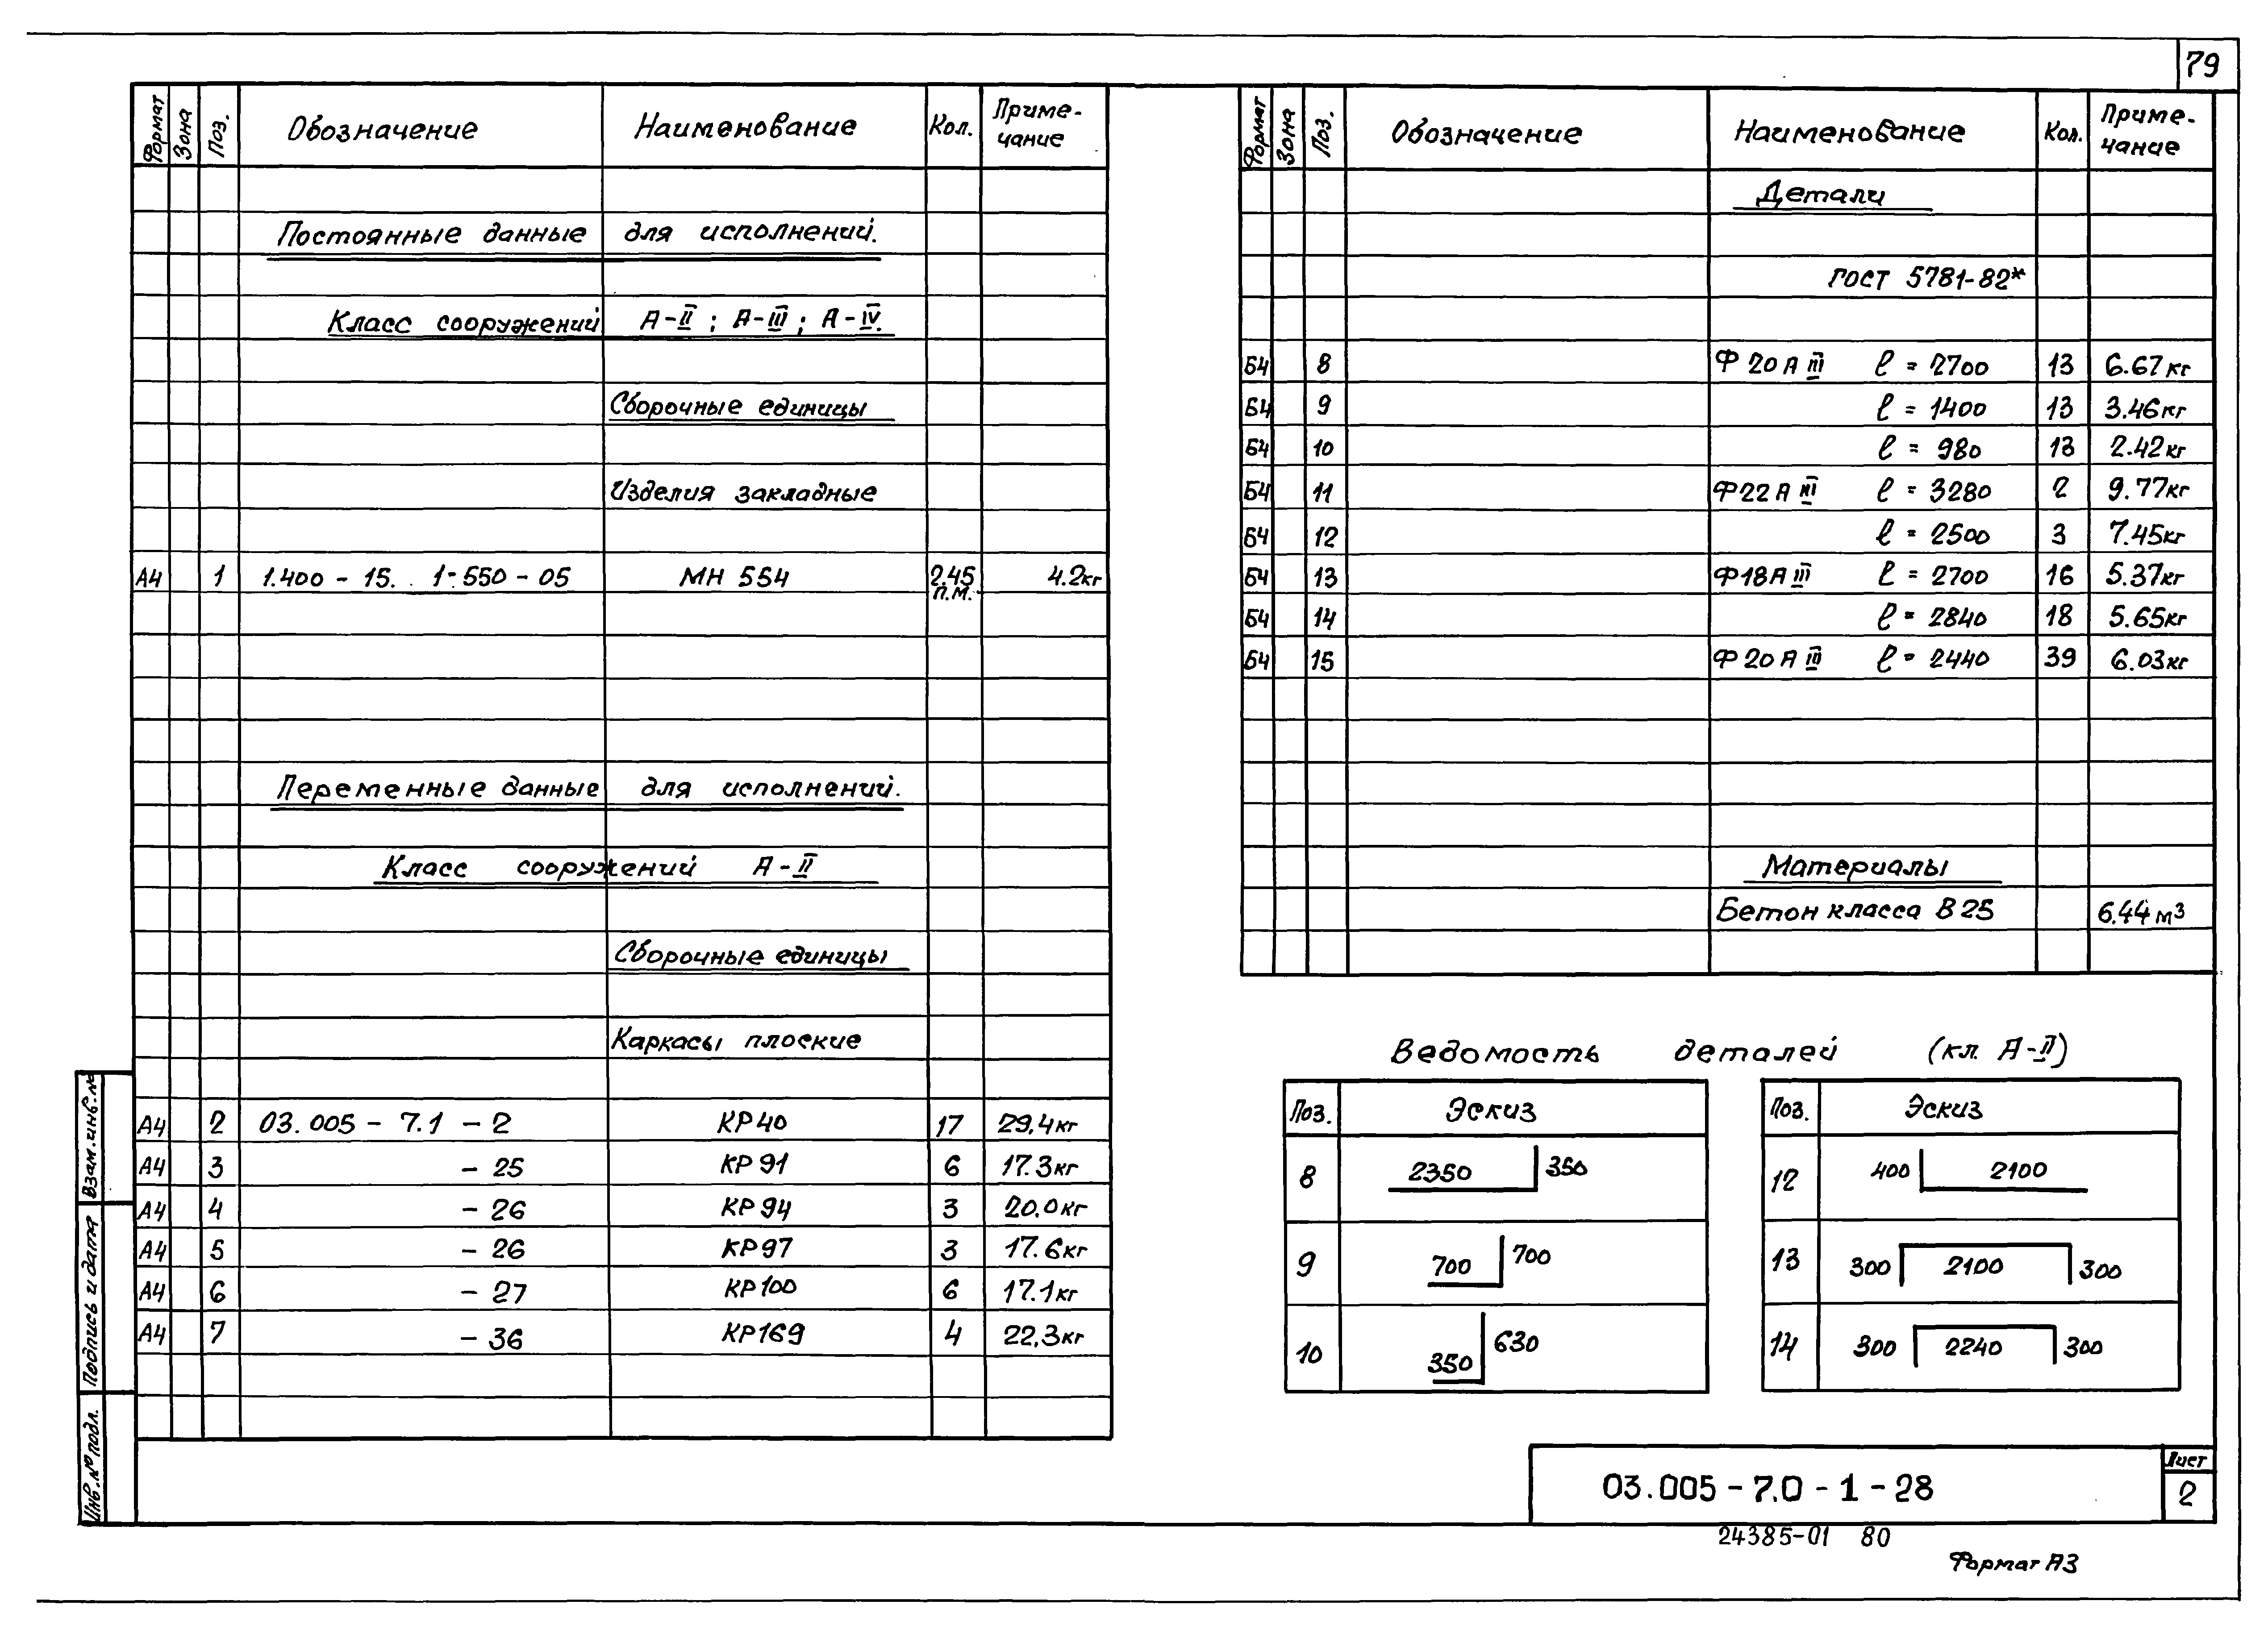 79
Формат Зона Поз. Обозначение Наименование Кол. Приме-
чание
Постоянные данные для исполнений.
Класс сооружений А-II ; А-III ; А-IV.
Сборочные единицы
Изделия закладные
А4 1 1.400 - 15. 1-550 - 05 МН 554 2.45 4.2кг
п.м.
Переменные данные для исполнений.
Класс сооружений А-II
Сборочные единицы
Каркасы плоские
А4 2 03.005 - 7.1 - 2 КР40 17 29,4кг
А4 3 - 25 КР91 6 17.3кг
А4 4 - 26 КР94 3 20.0кг
А4 5 - 26 КР97 3 17.6кг
А4 6 - 27 КР100 6 17.1кг
А4 7 - 36 КР169 4 22,3кг
Формат Зона Поз. Обозначение Наименование Кол. Приме-
чание
Детали
ГОСТ 5781-82*
Б4 8 Ф 20 А III ℓ = 2700 13 6.67кг
Б4 9 ℓ = 1400 13 3.46кг
Б4 10 ℓ = 980 13 2.42кг
Б4 11 Ф22 А III ℓ = 3280 2 9.77кг
Б4 12 ℓ = 2500 3 7.45кг
Б4 13 Ф18А III ℓ = 2700 16 5.37кг
Б4 14 ℓ = 2840 18 5.65кг
Б4 15 Ф 20 А III ℓ = 2440 39 6.03кг
Материалы
Бетон класса В 25 6.44 м³
Ведомость деталей (кл. А-II)
Поз. Эскиз
8 2350 350
9 700 700
10 350 630
Поз. Эскиз
12 400 2100
13 300 2100 300
14 300 2240 300
Взам.инв.№
Подпись и дата
Инв.№ подл.
03.005 - 7.0 - 1 - 28
Лист
2
24385-01 80
Формат А3